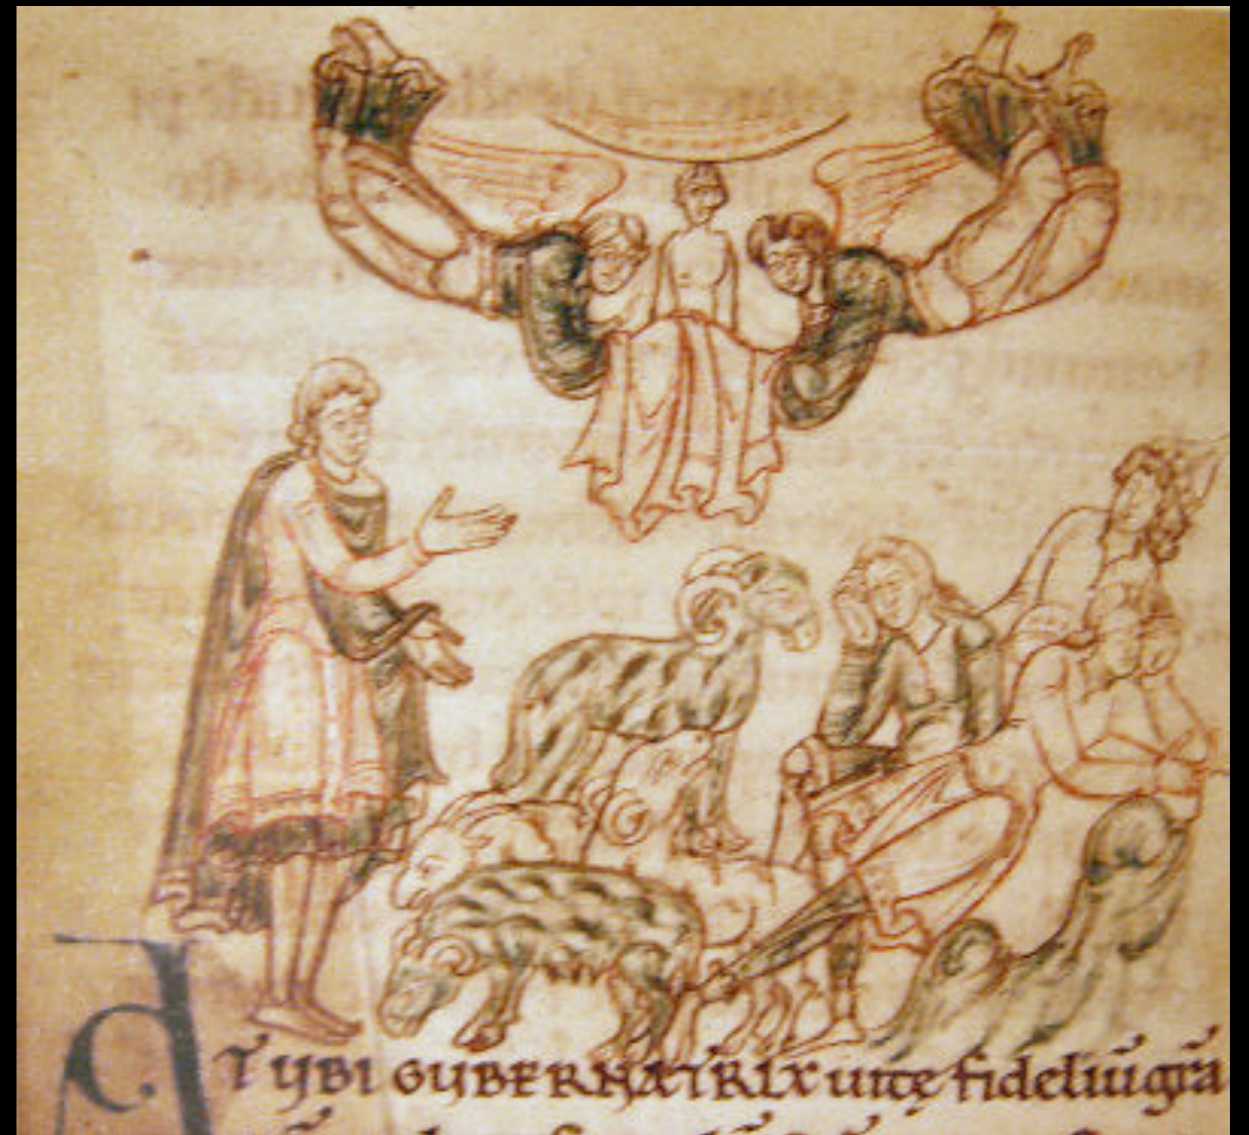 AT UBI GUBERNATRIX uitę fideliū grā